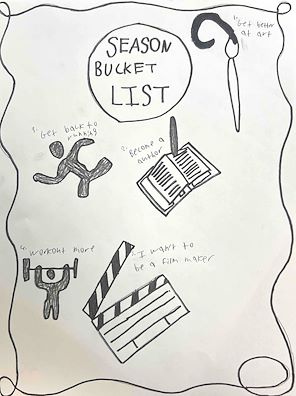 SEASON
BUCKET
LIST
Get better
at art
1. Get back to
running
2. Become a
author
4. Workout more
I want to
be a film maker